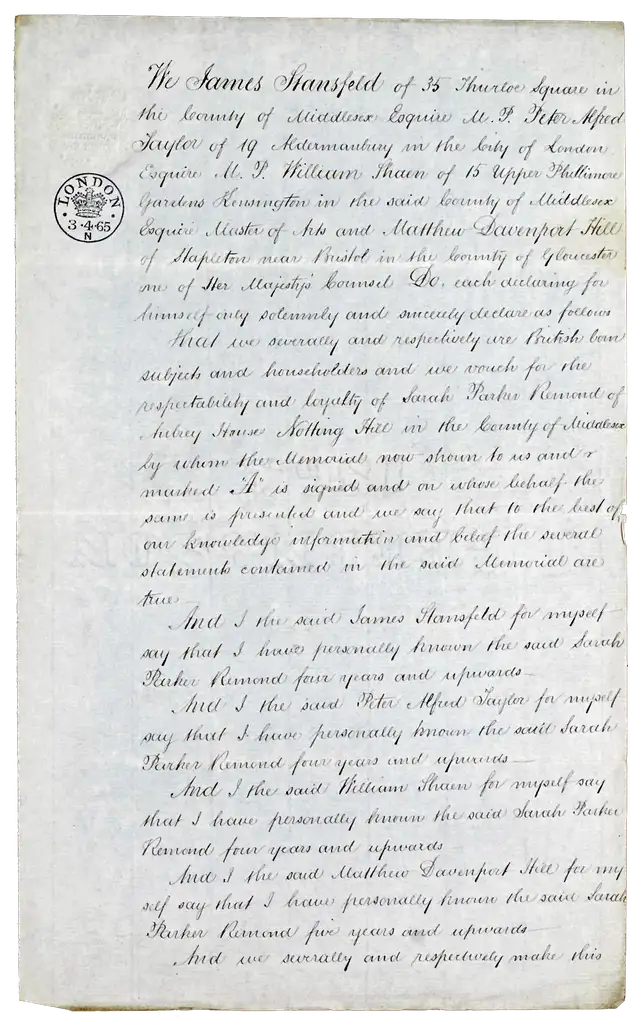 We James Stansfeld of 35 Thurloe Square in
the County of Middlesex Esquire M. P. Peter Alfred
Taylor of 19 Aldermanbury in the City of London
Esquire M. P. William Shaen of 15 Upper Phillimore
Gardens Kensington in the said County of Middlesex
Esquire Master of Arts and Matthew Davenport Hill
of Stapleton near Bristol in the County of Gloucester
one of Her Majesty's Counsel Do, each declaring for
himself only solemnly and sincerely declare as follows
LONDON
3.4.65
N
That we severally and respectively are British born
subjects and householders and we vouch for the
respectability and loyalty of Sarah Parker Remond of
Aubrey House Notting Hill in the County of Middlesex
by whom the Memorial now shown to us and
marked "A" is signed and on whose behalf the
same is presented and we say that to the best of
our knowledge information and belief the several
statements contained in the said Memorial are
true
And I the said James Stansfeld for myself
say that I have personally known the said Sarah
Parker Remond four years and upwards
And I the said Peter Alfred Taylor for myself
say that I have personally known the said Sarah
Parker Remond four years and upwards
And I the said William Shaen for myself say
that I have personally known the said Sarah Parker
Remond four years and upwards
And I the said Matthew Davenport Hill for my
self say that I have personally known the said Sarah
Parker Remond five years and upwards
And we severally and respectively make this